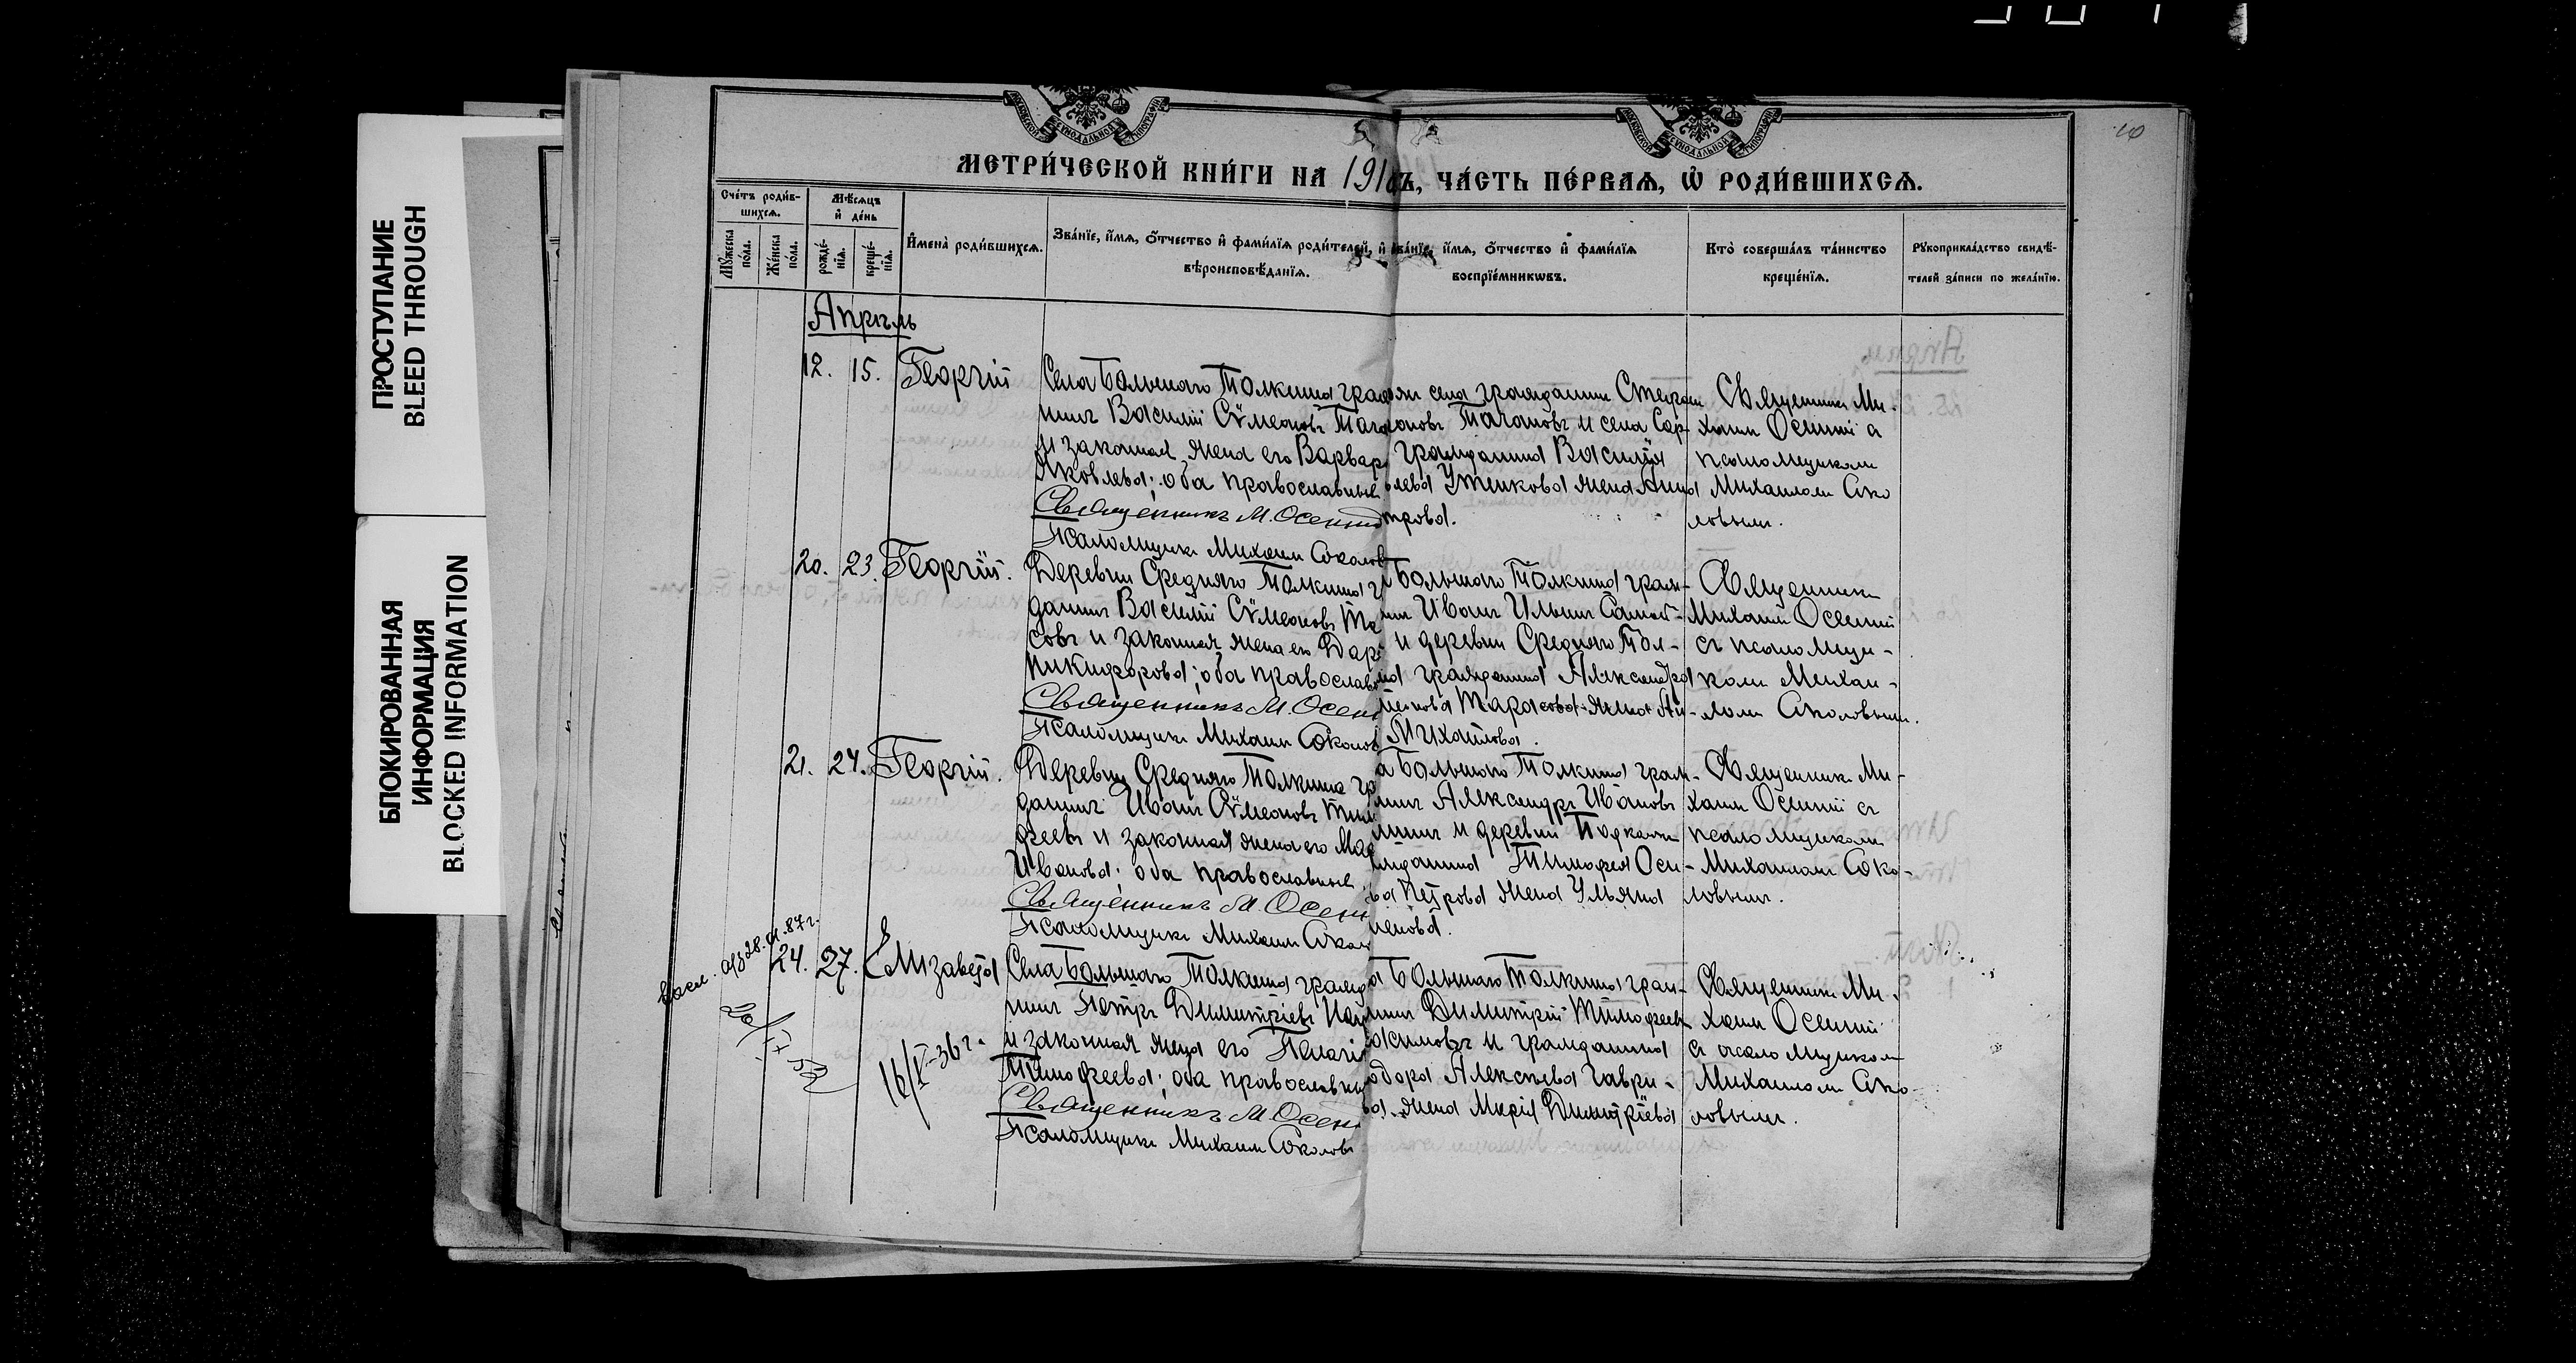 ПРОСТУПАНИЕ
BLEED THROUGH
БЛОКИРОВАННАЯ
ИНФОРМАЦИЯ
BLOCKED INFORMATION
МОСКОВСКОЙ СѴНОДАЛЬНОЙ ТИПОГРАФІИ
МОСКОВСКОЙ СѴНОДАЛЬНОЙ ТИПОГРАФІИ
10
МЕТРИ́ЧЕСКОЙ КНИ́ГИ НА 191 Ъ, ЧА́СТЬ ПЕ́РВАѦ, Ѡ҆ РОДИ́ВШИХСѦ.
Сче́тъ роди́в-
шихсѧ.
Мꙋ́жеска по́ла.
Же́нска по́ла.
Мѣ́сѧцъ
и҆ де́нь
рожде́-
нїѧ.
креще́-
нїѧ.
И҆мена̀ роди́вшихсѧ.
Зва́нїе, и҆́мѧ, ѻ҆́тчество и҆ фами́лїѧ роди́телей, и҆
вѣроисповѣ́данїѧ.
Зва́нїе, и҆́мѧ, ѻ҆́тчество и҆ фами́лїѧ
воспрїе́мникѡвъ.
Кто̀ соверша́лъ та́инство
креще́нїѧ.
Рꙋкоприкла́дство свидѣ́-
телей за́писи по жела́нїю.
Апрѣль
12. 15. Георгій
Села Большаго Толкиша граж
нинъ Василій Сѵмеоновъ
и законная жена его Варвар
Яковлева; оба православные
Священникъ М. Осенній
Псаломщикъ Михаилъ Соколовъ
села гражданинъ Стефан
Тагановъ и села Сар-
гражданина Василія
Утенкова жена Анна
трова.
Священникъ Ми-
хаилъ Осенній съ
псаломщикомъ
Михаиломъ Соко
ловымъ.
20. 23. Георгій.
Деревни Средняго Толкиша г
данинъ Василій Сѵмеоновъ Та
совъ и законная жена его Дар
Никифорова; оба православ
Священникъ М. Осен
Псаломщикъ Михаилъ Соколов
Большаго Толкиша граж-
нъ Иванъ Ильинъ
и деревни Средняго Тол-
гражданина Александра
Тарасова жена
Михайлова.
Священникъ
Михаилъ Осенній
съ псаломщи-
комъ Михаи-
ломъ Соколовымъ.
21. 24. Георгій.
Деревни Средняго Толкиша гр
данинъ Иванъ Сѵмеоновъ Тим
феевъ и законная жена его Мар
Иванова; оба православные
Священникъ М. Осен
Псаломщикъ Михаилъ Сокол
а Большаго Толкиша граж-
нинъ Александръ Ивановъ
и деревни
жданина Тимофея Оси-
ва Петрова жена Ульяна
менова.
Священникъ Ми-
хаилъ Осенній съ
псаломщикомъ
Михаиломъ Соко-
ловымъ.
28.01.87г.
24. 27. Елизавета
16/V-36г.
Села Большаго Толкиша гражд
нинъ Петръ Димитріевъ
и законная жена его Пелагі
Тимофеева; оба православны
Священникъ М. Осен
Псаломщикъ Михаилъ Соколовъ
а Большаго Толкиша граж-
нинъ Димитрій Тимофеевъ
и гражданина
одора Алексѣева Гаври-
ва жена Марія Димитріева
Священникъ Ми-
хаилъ Осенній
съ псаломщикомъ
Михаиломъ Соко-
ловымъ.